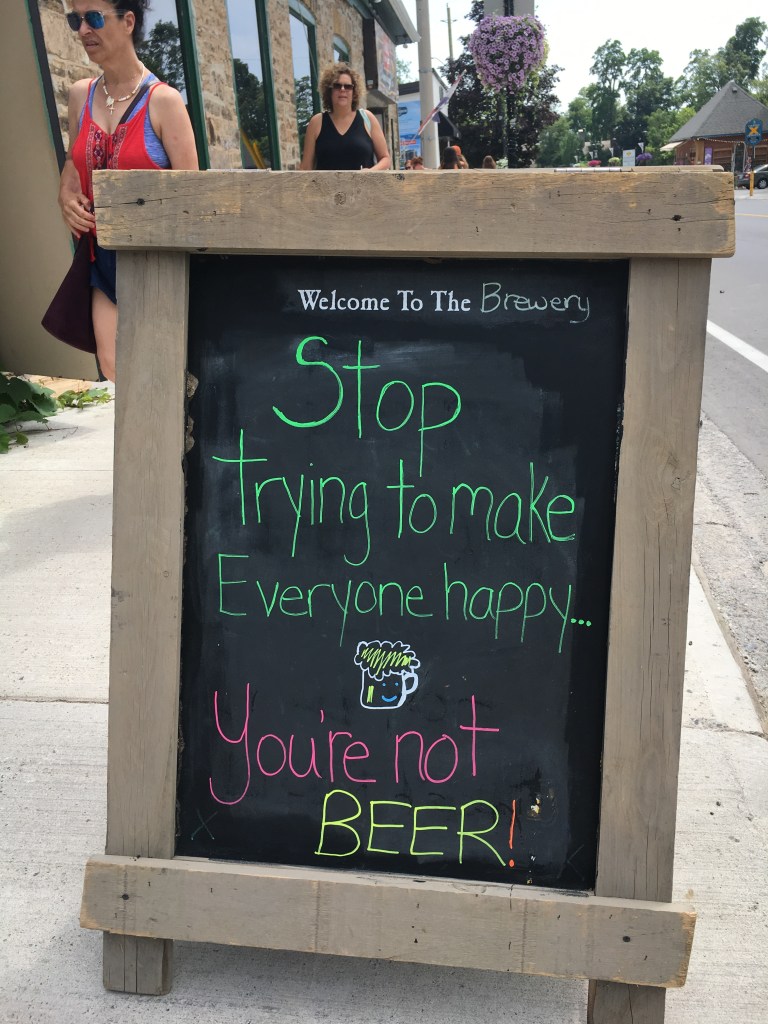 Welcome To The Brewery
Stop
trying to make
Everyone happy...
You're not
BEER!